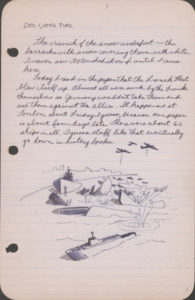 DEC 1, 1942 TUES.
The crunch of the snow underfoot — the
barracks with snow covering them with white
I never saw
came here.
Today I read in the paper that the French fleet
was itself up. Almost all were sunk by the French
themselves so Germany wouldn't take them and
use them against the allies. It happened at
Toulon last Friday I guess, because our paper
is about four days late. There were about 60
ships in all. I guess stuff like that eventually
go down in history books.